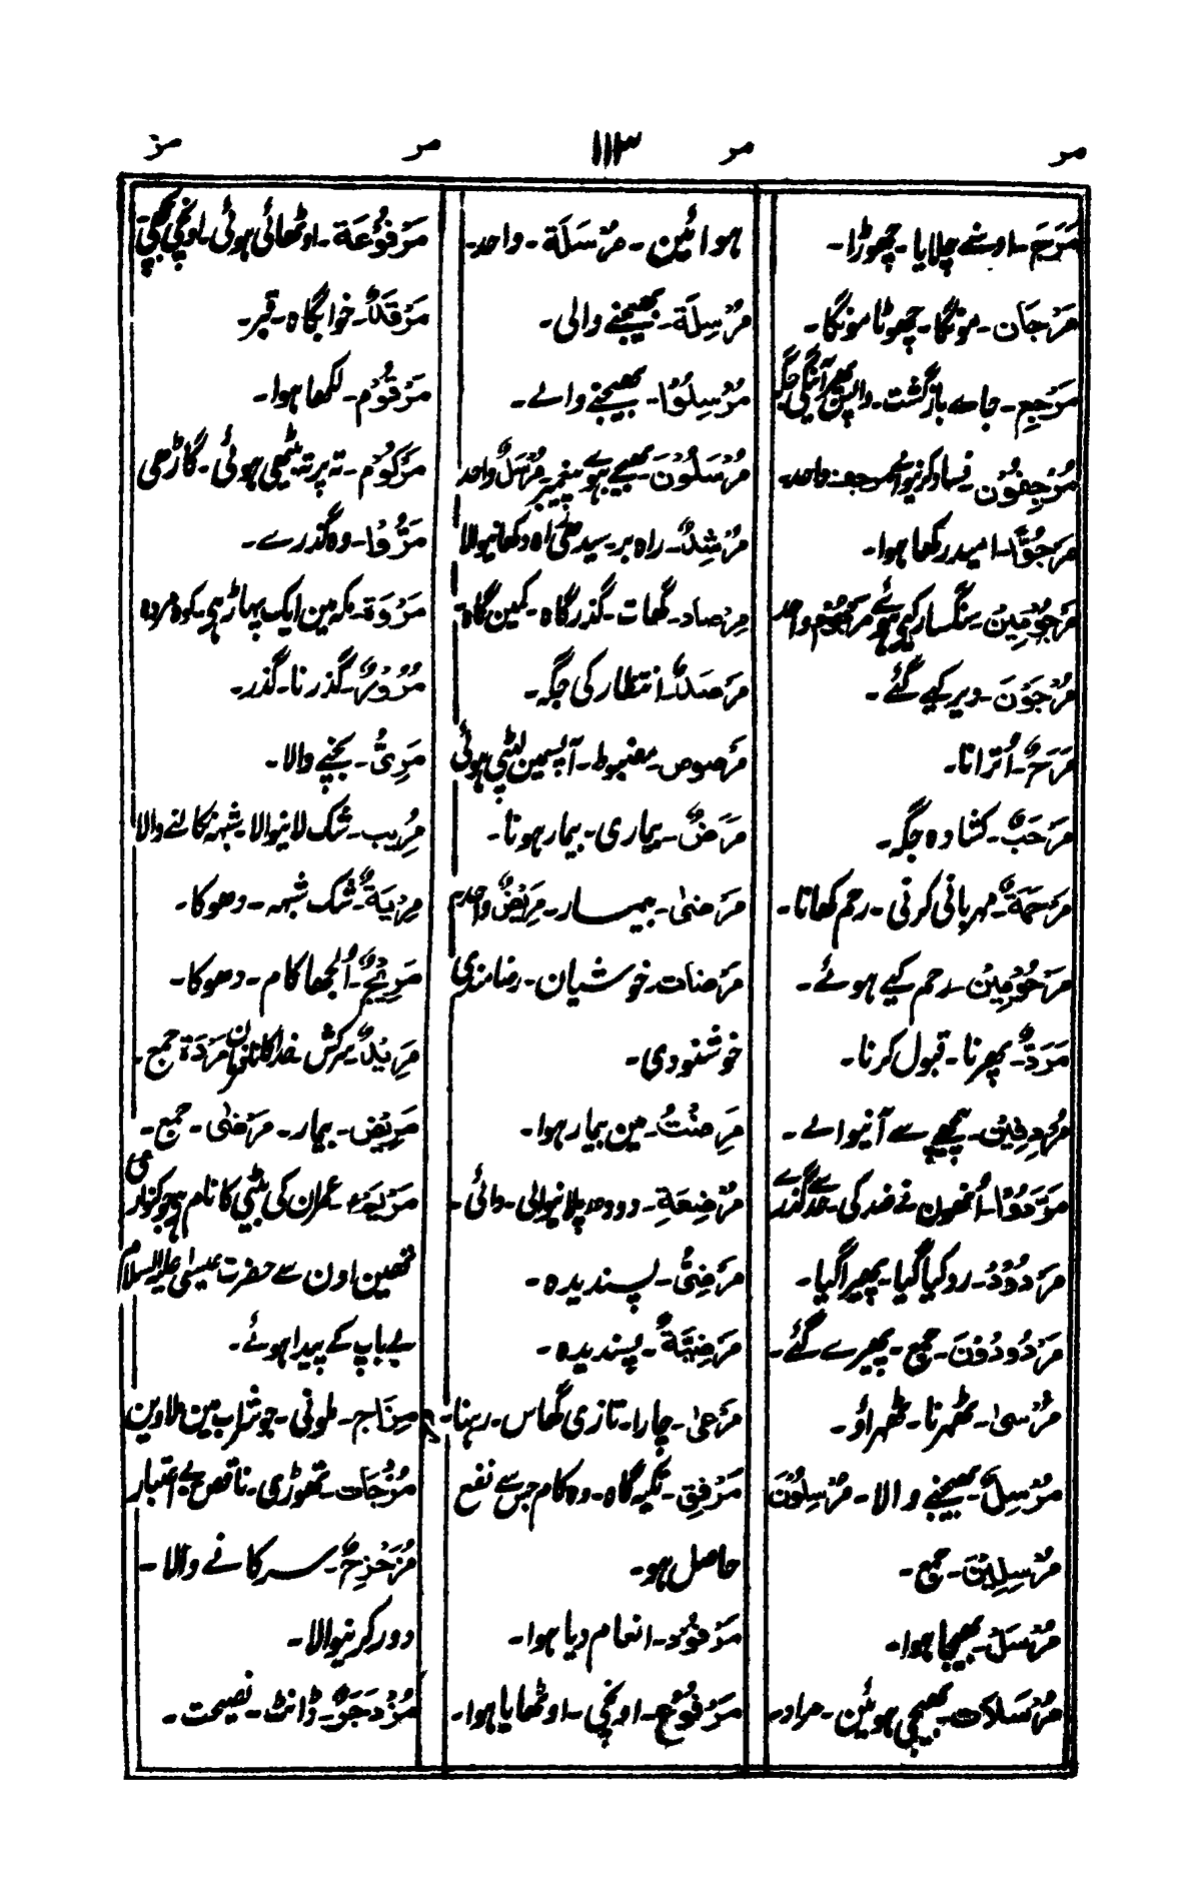 مر مر ۱۱۳ مر مز
مَرَجَ۔ اوسنے چلایا۔ چھوڑا۔
مَرْجَان۔ مونگا۔ چھوٹا مونگا۔
مَرْجِع۔ جاے بازگشت۔ واپس پھر آنیکی جگہ
مُرْجِفُوْن۔ فساد کرنیوالے مرجف واحد۔
مَرْجُوًّا۔ امید رکھا ہوا۔
مَرْجُوْمِیْنَ۔ سنگسار کیے ہوئے مَرْجُوْم واحد
مُرْجَوْنَ۔ دیر کیے گئے۔
مَرَحٌ۔ اُترانا۔
مَرْحَبٌ۔ کشادہ جگہ۔
مَرْحَمَةٌ۔ مہربانی کرنی۔ رحم کھانا۔
مَرْحُوْمِیْنَ۔ رحم کیے ہوئے۔
مَرَدٌّ۔ پھرنا۔ قبول کرنا۔
مُرْدِفِیْنَ۔ پیچھے سے آنیوالے۔
مَرَدُوْا۔ اُنھون نے ضد کی۔ حد سے گذرے
مَرْدُوْدُ۔ رد کیا گیا۔ پھیرا گیا۔
مَرْدُودُوْنَ۔ جمع۔ پھیرے گئے۔
مُرْسیٰ۔ ٹھہرنا۔ ٹھہراؤ۔
مُرْسِلٌ۔ بھیجنے والا۔ مُرْسِلُوْنَ
مُرْسِلِیْنَ۔ جمع۔
مُرْسَلٌ۔ بھیجا ہوا۔
مُرْسَلَات۔ بھیجی ہوئین۔ مراد
ہوائین۔ مُرْسَلَة۔ واحد۔
مُرْسِلَة۔ بھیجنے والی۔
مُرْسِلُوْا۔ بھیجنے والے۔
مُرْسَلُوْنَ۔ بھیجے ہوے پیغمبر۔ مُرْسَلٌ واحد
مُرْشِدٌ۔ راہ بر۔ سیدھی راہ دکھانیوالا
مِرْصَاد۔ گھات۔ گذرگاہ۔ کمین گاہ
مَرْصَدٌ۔ انتظار کی جگہ۔
مَرْصوص۔ مضبوط۔ آپسمین لپٹی ہوئی
مَرَضٌ۔ بیماری۔ بیمار ہونا۔
مَرْضیٰ۔ بیمار۔ مَرِیْضٌ واحد
مَرْضات۔ خوشیان۔ رضامندی
خوشنودی۔
مَرِضْتُ۔ مین بیمار ہوا۔
مُرْضِعَة۔ دودھ پلانیوالی۔ دائی۔
مَرْضِیٌّ۔ پسندیدہ۔
مَرْضِیَّةٌ۔ پسندیدہ۔
مَرْعیٰ۔ چارا۔ تازی گھاس۔ رہنا۔
مَرْفِق۔ تکیہ گاہ۔ وہ کام جس سے نفع
حاصل ہو۔
مَرْفُوْد۔ انعام دیا ہوا۔
مَرْفُوْع۔ اونچی۔ اوٹھایا ہوا۔
مَرْفُوْعَة۔ اوٹھائی ہوئی۔ اونچی
مَرْقَدٌ۔ خوابگاہ۔ قبر۔
مَرْقُوْم۔ لکھا ہوا۔
مَرْکُوْم۔ تہ پر تہ بیٹھی ہوئی۔ گاڑھی
مَرُّوْا۔ وہ گذرے۔
مَرْوَة۔ مکہ مین ایک پہاڑ ہی۔ کوہ مروہ
مُرُوْرٌ۔ گذرنا۔ گذر۔
مَرِیٌّ۔ پچنے والا۔
مُرِیب۔ شک لانیوالا۔ شبہہ نکالنے والا
مِرْیَةٌ۔ شک شبہہ۔ دھوکا۔
مَرِیْجٌ۔ اُلجھا کام۔ دھوکا۔
مَرِیْدٌ۔ سرکش خدا کا نافرمان مَرَدَة جمع۔
مَرِیْض۔ بیمار۔ مَرْضیٰ۔ جمع۔
مَرْیَمَ۔ عمران کی بیٹی کا نام ہی جو کنواری
تھین اون سے حضرت عیسیٰ علیہ السلام
بے باپ کے پیدا ہوئے۔
مِزَاج۔ ملونی۔ جو شراب مین ملاوین
مُزْجَات۔ تھوڑی۔ ناقص بے اعتبار
مُزَحْزِحٌ۔ سرکانے والا۔
دور کرنیوالا۔
مُزْدَجَرٌ۔ ڈانٹ۔ نصیحت۔